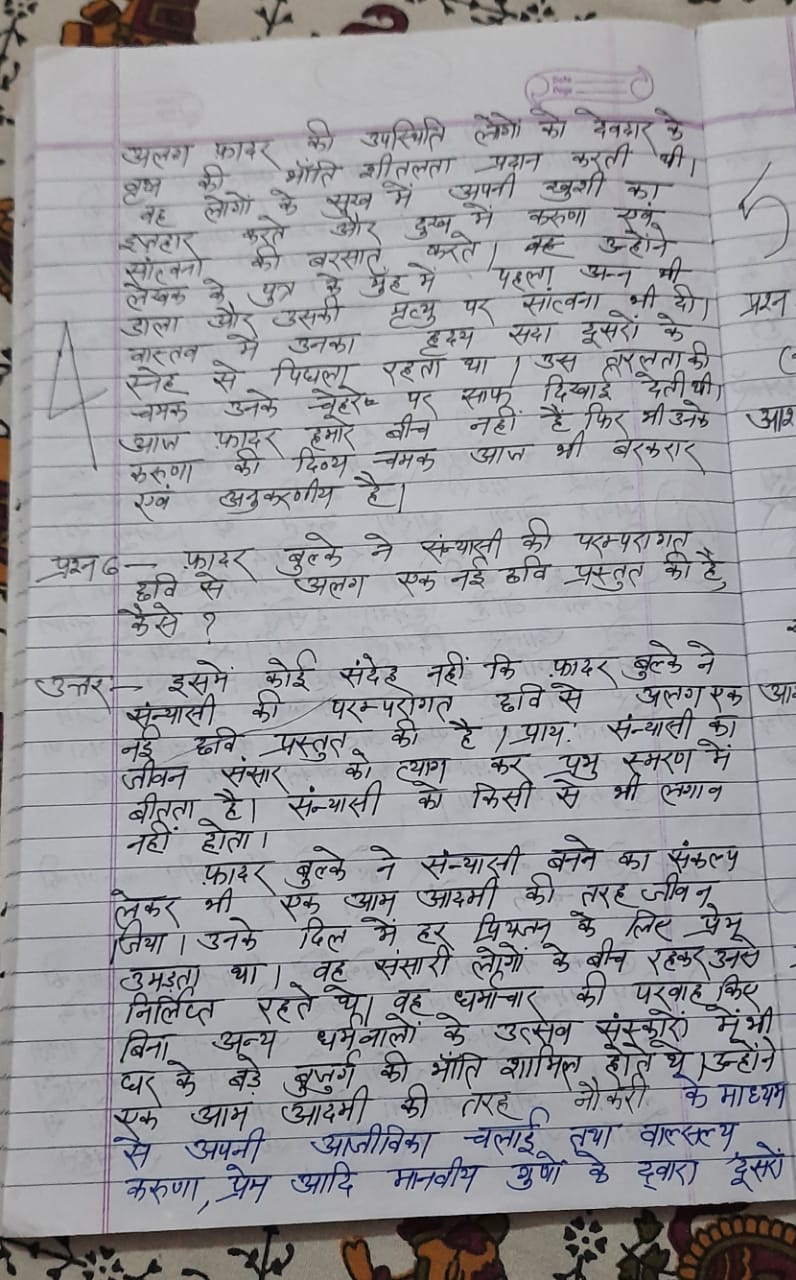 अलग फ़ादर की उपस्थिति लोगों को देवदार के
वृक्ष की भाँति शीतलता प्रदान करती थी।
वह लोगों के सुख में अपनी खुशी का
इज़हार करते और दुख में करुणा एवं
सांत्वना की बरसात करते। उन्होंने
लेखक के पुत्र के मुँह में पहला अन्न भी
डाला और उसकी मृत्यु पर सांत्वना भी दी।
वास्तव में उनका हृदय सदा दूसरों के
स्नेह से पिघला रहता था। उस तरलता की
चमक उनके चेहरे पर साफ दिखाई देती थी।
आज फ़ादर हमारे बीच नहीं है फिर भी उनके
करुणा की दिव्य चमक आज भी बरकरार
एवं अनुकरणीय है।
प्रश्न 6 — फ़ादर बुल्के ने संन्यासी की परम्परागत
छवि से अलग एक नई छवि प्रस्तुत की है,
कैसे ?
उत्तर:— इसमें कोई संदेह नहीं कि फ़ादर बुल्के ने
संन्यासी की परम्परागत छवि से अलग एक
नई छवि प्रस्तुत की है। प्राय: संन्यासी का
जीवन संसार को त्याग कर प्रभु स्मरण में
बीतता है। संन्यासी को किसी से भी लगाव
नहीं होता।
फ़ादर बुल्के ने संन्यासी बनने का संकल्प
लेकर भी एक आम आदमी की तरह जीवन
जिया। उनके दिल में हर प्रियजन के लिए प्रेम
उमड़ता था। वह संसारी लोगों के बीच रहकर उनसे
निर्लिप्त रहते थे। वह धर्माचार की परवाह किए
बिना अन्य धर्मवालों के उत्सव संस्कारों में भी
घर के बड़े बुजुर्ग की भाँति शामिल होते थे। उन्होंने
एक आम आदमी की तरह नौकरी के माध्यम
से अपनी आजीविका चलाई तथा वात्सल्य,
करुणा, प्रेम आदि मानवीय गुणों के द्वारा दूसरों
प्रश्न